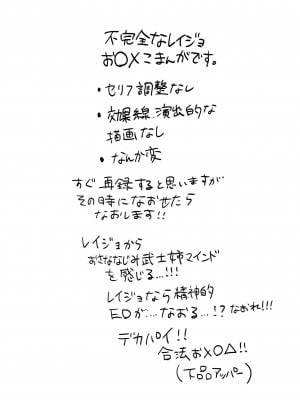 不完全なレイジョ
お〇×こまんがです。
・セリフ調整なし
・効果線.演出的な
描画なし
・なんか変
すぐ再録すると思いますが
その時になおせたら
なおします!!
レイジョから
おさななじみ武士姉マインド
を感じる…!!!
レイジョなら精神的
EDが…なおる…!?なおれ!!!
デカパイ!!
合法お×〇△!!
(下品アッパー)